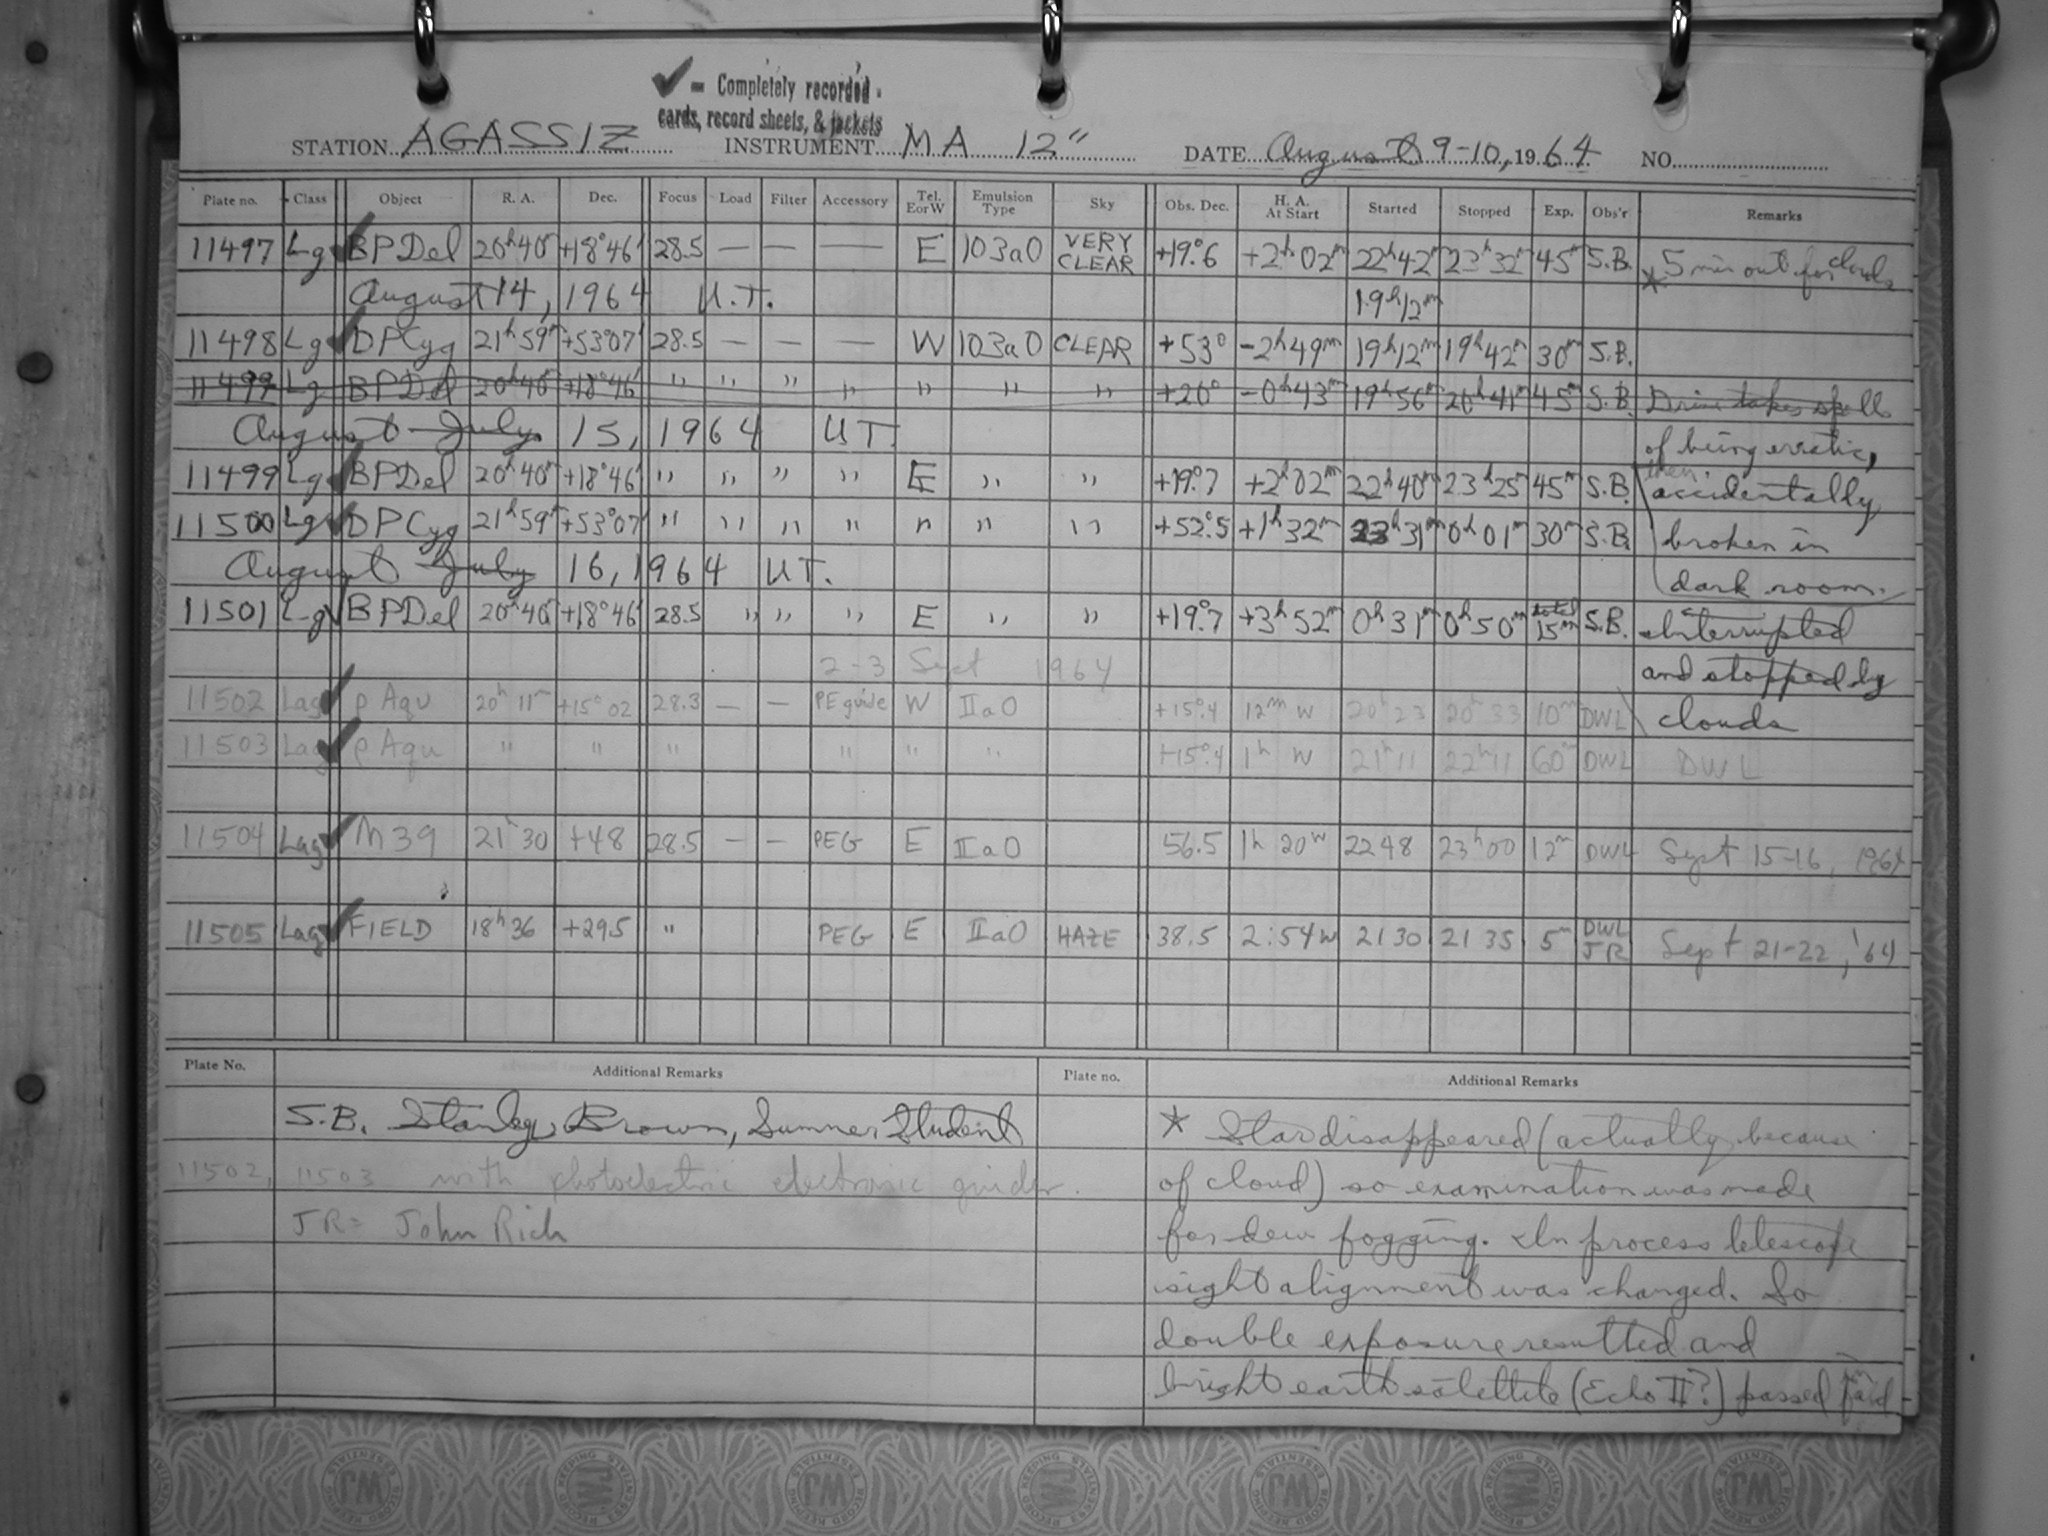 ✓ – Completely recorded
cards, record sheets, & jackets
STATION AGASSIZ INSTRUMENT MA 12" DATE August 9-10, 1964 NO.
Plate no. Class Object R. A. Dec. Focus Load Filter Accessory Tel. E or W Emulsion Type Sky Obs. Dec. H. A. At Start Started Stopped Exp. Obs'r Remarks
11497 Lg ✓ BPDel 20h40m +18°46' 28.5 — — — E 103aO VERY CLEAR +19°.6 +2h02m 22h42m 23h32m 45m S.B. * 5 min out for clouds
August 14, 1964 U.T. 19h12m
11498 Lg ✓ DPCyg 21h59m +53°07' 28.5 — — — W 103aO CLEAR +53° -2h49m 19h12m 19h42m 30m S.B.
11499 Lg BPDel 20h40m +18°46' " " " " " " " +20° -0h43m 19h56m 20h41m 45m S.B. Drive takes spells
August July 15, 1964 U.T. of being erratic,
11499 Lg ✓ BPDel 20h40m +18°46' " " " " E " " +19°.7 +2h02m 22h40m 23h25m 45m S.B. then accidentally
11500 Lg ✓ DPCyg 21h59m +53°07' " " " " " " " +52°.5 +1h32m 23h31m 0h01m 30m S.B. broken in
August July 16, 1964 U.T. dark room.
11501 Lg ✓ BPDel 20h40m +18°46' 28.5 " " " E " " +19°.7 +3h52m 0h31m 0h50m total 15m S.B. Interrupted
2-3 Sept 1964 and stopped by
11502 Lag ✓ ρ Aqu 20h 11m +15° 02 28.3 — — PE guide W IIaO +15°.4 12m W 20h23 20h33 10m DWL clouds
11503 Lag ✓ ρ Aqu " " " " " " +15°.4 1h W 21h11 22h11 60m DWL DWL
11504 Lag ✓ M39 21h 30 +48 28.5 — — PEG E IIaO 56.5 1h 20W 2248 23h00 12m DWL Sept 15-16, 1964
11505 Lag ✓ FIELD 18h36 +29.5 " PEG E IIaO HAZE 38.5 2:54W 2130 2135 5m DWL JR Sept 21-22, '64
Plate No. Additional Remarks Plate no. Additional Remarks
S.B. Stanley Brown, Summer Student
11502, 11503 with photoelectric electronic guider.
JR = John Rich
* Star disappeared (actually because
of cloud) so examination was made
for dew fogging. In process telescope
sight alignment was changed. So
double exposure resulted and
bright earth satellite (Echo II?) passed